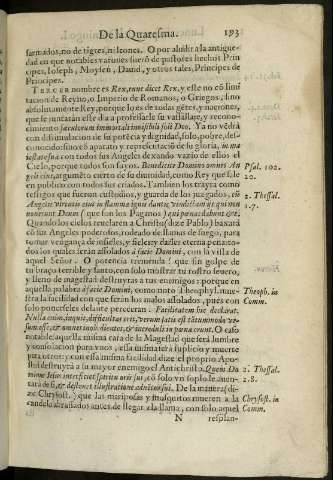 De la Quaresma. 193
sarnados, no de tigres, ni leones. O por aludir a la antigue-
dad en que notables varones fuerõ de pastores hechos Prin
cipes, Ioseph, Moysen, Dauid, y otros tales, Principes de
Principes.
TERCER nombre es Rex, tunc dicet Rex, y este no cõ limi
tacion de Reyno, o Imperio de Romanos, o Griegos, sino
absolutamente Rey, porque lo es de todas gẽtes, y naciones,
que se juntarán este dia a professarle su vassallage, y reco-
nocimiento sæculorum immortali inuisibili soli Deo. Ya no vẽdrá
con dissimulacion de su potẽcia y dignidad, solo, pobre, des-
conocido, sino cõ aparato y representaciõ de su gloria, in ma
iestate sua con todos sus Angeles dexando vazio de ellos el
Cielo, porque todos son suyos. Benedicite Domino omnes An
geli eius, argumẽto cierto de su diuinidad, como Rey que sale
en publico con todos sus criados. Tambien los trayra como
testigos que fueron custodios, y guarda de los juzgados, cũ
Angelis virtutis eius in flamma ignis dantis vindictam ijs qui non
nouerunt Deum (que son los Paganos) qui pœnas dabunt &c.
Quando los cielos reuelaren a Christo (dize Pablo) baxará
cõ sus Angeles poderosos, rodeado de llamas de fuego, para
tomar vengança de infieles, y fieles y darles eterna pena: to-
dos los quales serán assolados à facie Domini, con la vista de
aquel Señor. O potencia tremenda! que sin golpe de
tu braço terrible y santo, con solo mostrar tu rostro seuero,
y lleno de magestad destruyras a tus enemigos: porque en
aquella palabra à facie Domini, como notò Theophylact. mues-
tra la facilidad con que serán los malos assolados, pues con
solo ponerseles delante pereceran. Facilitatem sic declarat.
Nulla enim, inquit, difficultas erit, verum satis est tãtummodo ve-
sum esse, & omnes inobedientes, & increduli in pœna erunt. O caso
notable: aquella misma cara de la Magestad que será lumbre
y consolacion para vnos, essa misma será suplicio y muerte
para otros; y con essa misma facilidad dize el proprio Apos-
tol destruyrà a su mayor enemigo el Antichristo. Quem Do
minus Iesus interficiet spiritu oris sui, cõ solo vn soplo le auen-
tara de si, & destruet illustratione aduentus sui. De la manera (di-
ze Chrysost.) que las mariposas y mosquitos mueren a la
candela abrasados antes de llegar a la llama, con solo aquel
N resplan-
Psal. 102.
20.
2. Thessal.
1. 7.
Theoph. in
Comm.
2. Thessal.
2. 8.
Chrysost. in
Comm.